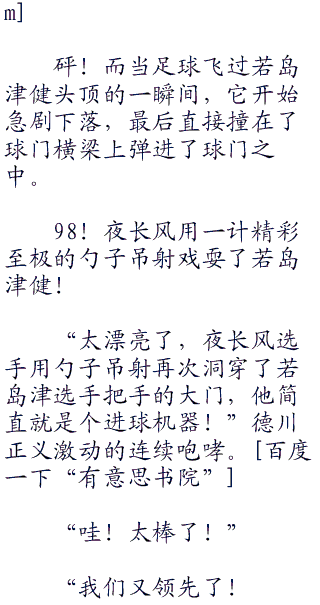 m]
砰！而当足球飞过若岛
津健头顶的一瞬间，它开始
急剧下落，最后直接撞在了
球门横梁上弹进了球门之
中。
98！夜长风用一计精彩
至极的勺子吊射戏耍了若岛
津健！
“太漂亮了，夜长风选
手用勺子吊射再次洞穿了若
岛津选手把手的大门，他简
直就是个进球机器！”德川
正义激动的连续咆哮。[百度
一下“有意思书院”]
“哇！太棒了！”
“我们又领先了！